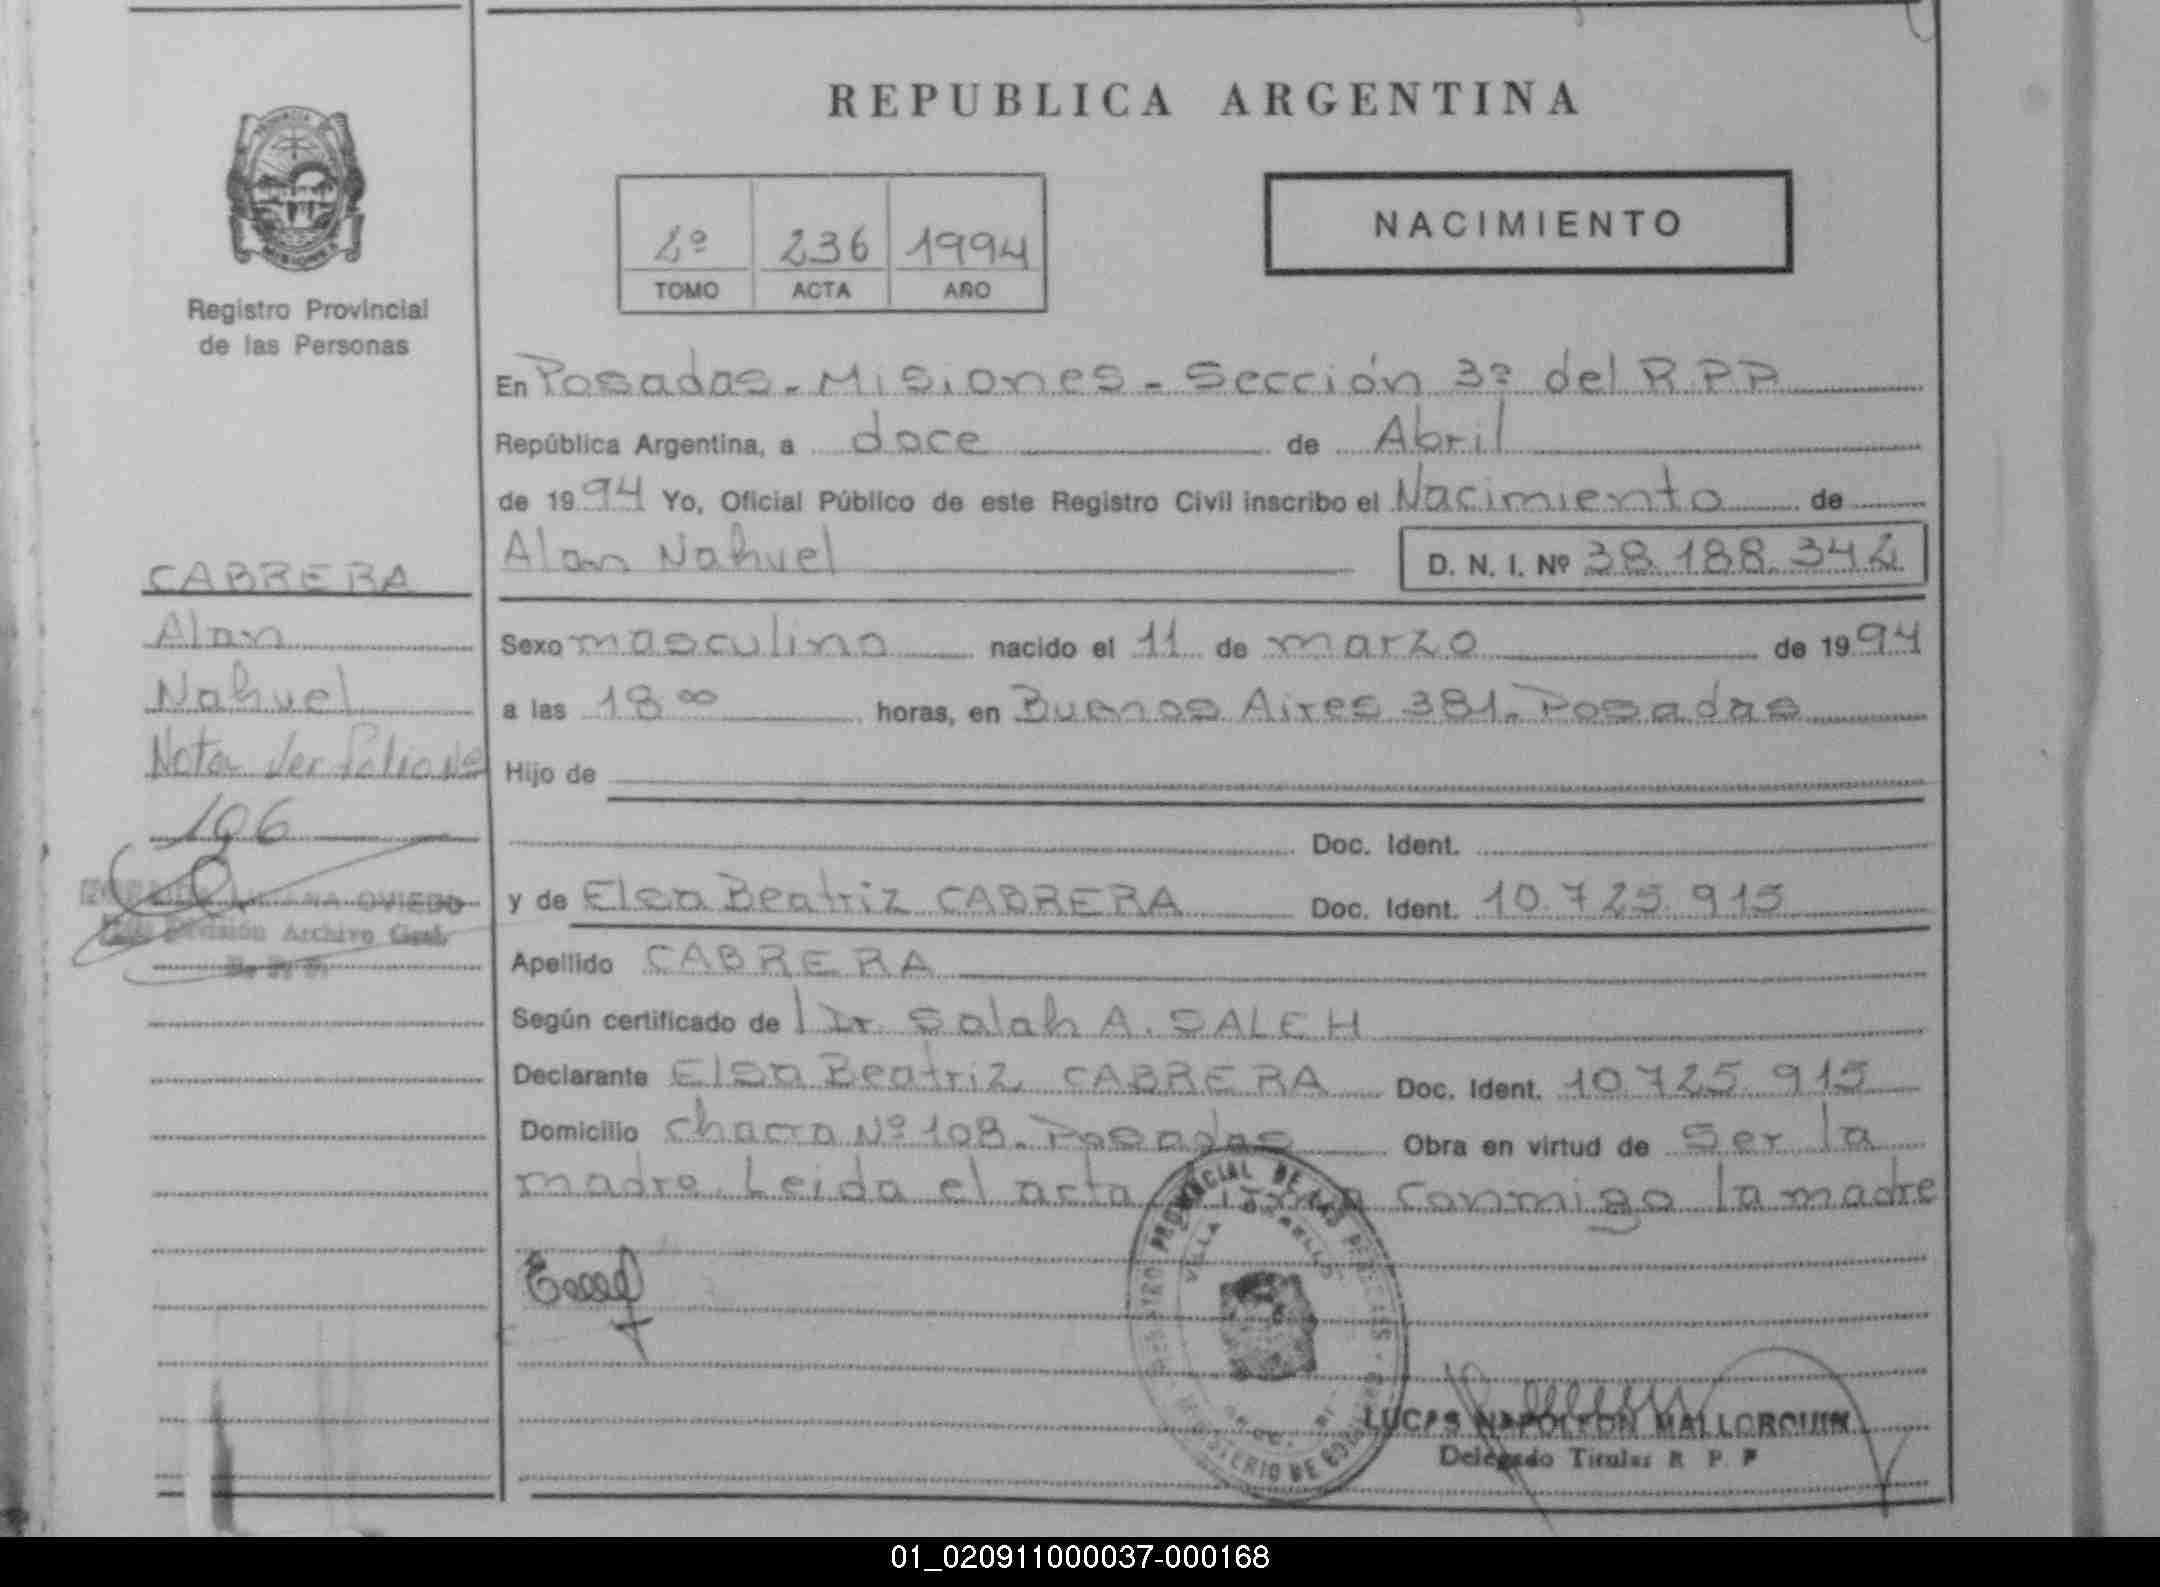 REPUBLICA ARGENTINA
NACIMIENTO
2º 236 1994
TOMO ACTA AÑO
Registro Provincial
de las Personas
En Posadas - Misiones - Sección 3º del R.P.P
República Argentina, a doce de Abril
de 1994 Yo, Oficial Público de este Registro Civil inscribo el Nacimiento de
Alan Nahuel D. N. I. Nº 38.188.342
Sexo masculino nacido el 11 de marzo de 1994
a las 18 ºº horas, en Buenos Aires 381. Posadas
Hijo de
Doc. Ident.
y de Elsa Beatriz CABRERA Doc. Ident. 10.725.915
Apellido CABRERA
Según certificado de Dr. Salah A. SALEH
Declarante Elsa Beatriz CABRERA Doc. Ident. 10.725.915
Domicilio Chacra Nº 108. Posadas Obra en virtud de ser la
madre. Leida el acta firma conmigo la madre
CABRERA
Alan
Nahuel
Nota Ver folio Nº
196
OVIEDO
División Archivo Gral.
R. P. P.
REGISTRO PROVINCIAL DE LAS PERSONAS
VILLA
MINISTERIO DE GOBIERNO
LUCAS NAPOLEON MALLORQUIN
Delegado Titular R. P. P
01_020911000037-000168